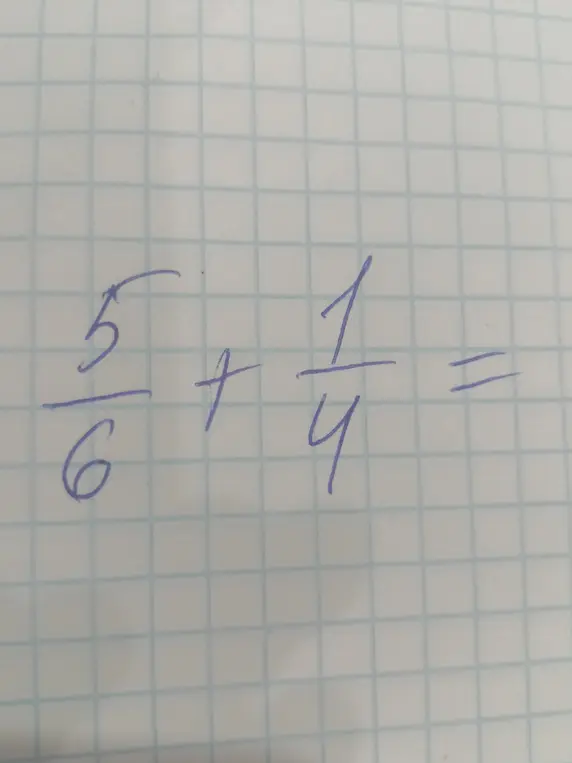 5/6 + 1/4 =